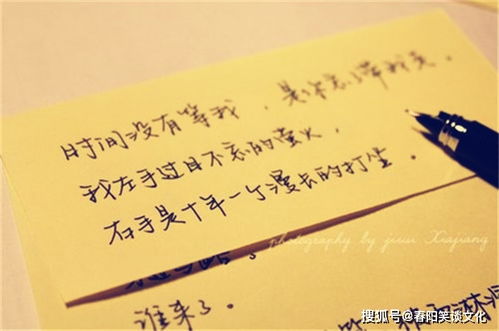 时间没有等我，是你忘了带我走。
我左手过目不忘的萤火，
右手是十年一个漫长的打坐。
photography by
谁来了。
搜狐号@春阳笑谈文化